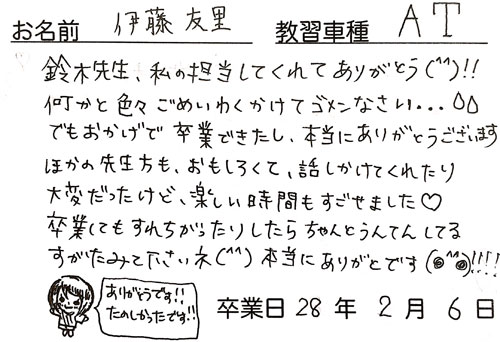 お名前 伊藤 友里 教習車種 AT
鈴木先生、私の担当してくれてありがとう(^^)!!
何かと色々ごめいわくかけてゴメンなさい...
でもおかげで卒業できたし、本当にありがとうございます
ほかの先生方も、おもしろくて、話しかけてくれたり
大変だったけど、楽しい時間もすごせました♡
卒業してもすれちがったりしたらちゃんとうんてんしてる
すがたみて下さいネ(^^)本当にありがとです(◉^^◉)!!!!
ありがとうです!!
たのしかったです!!
卒業日 28 年 2 月 6 日